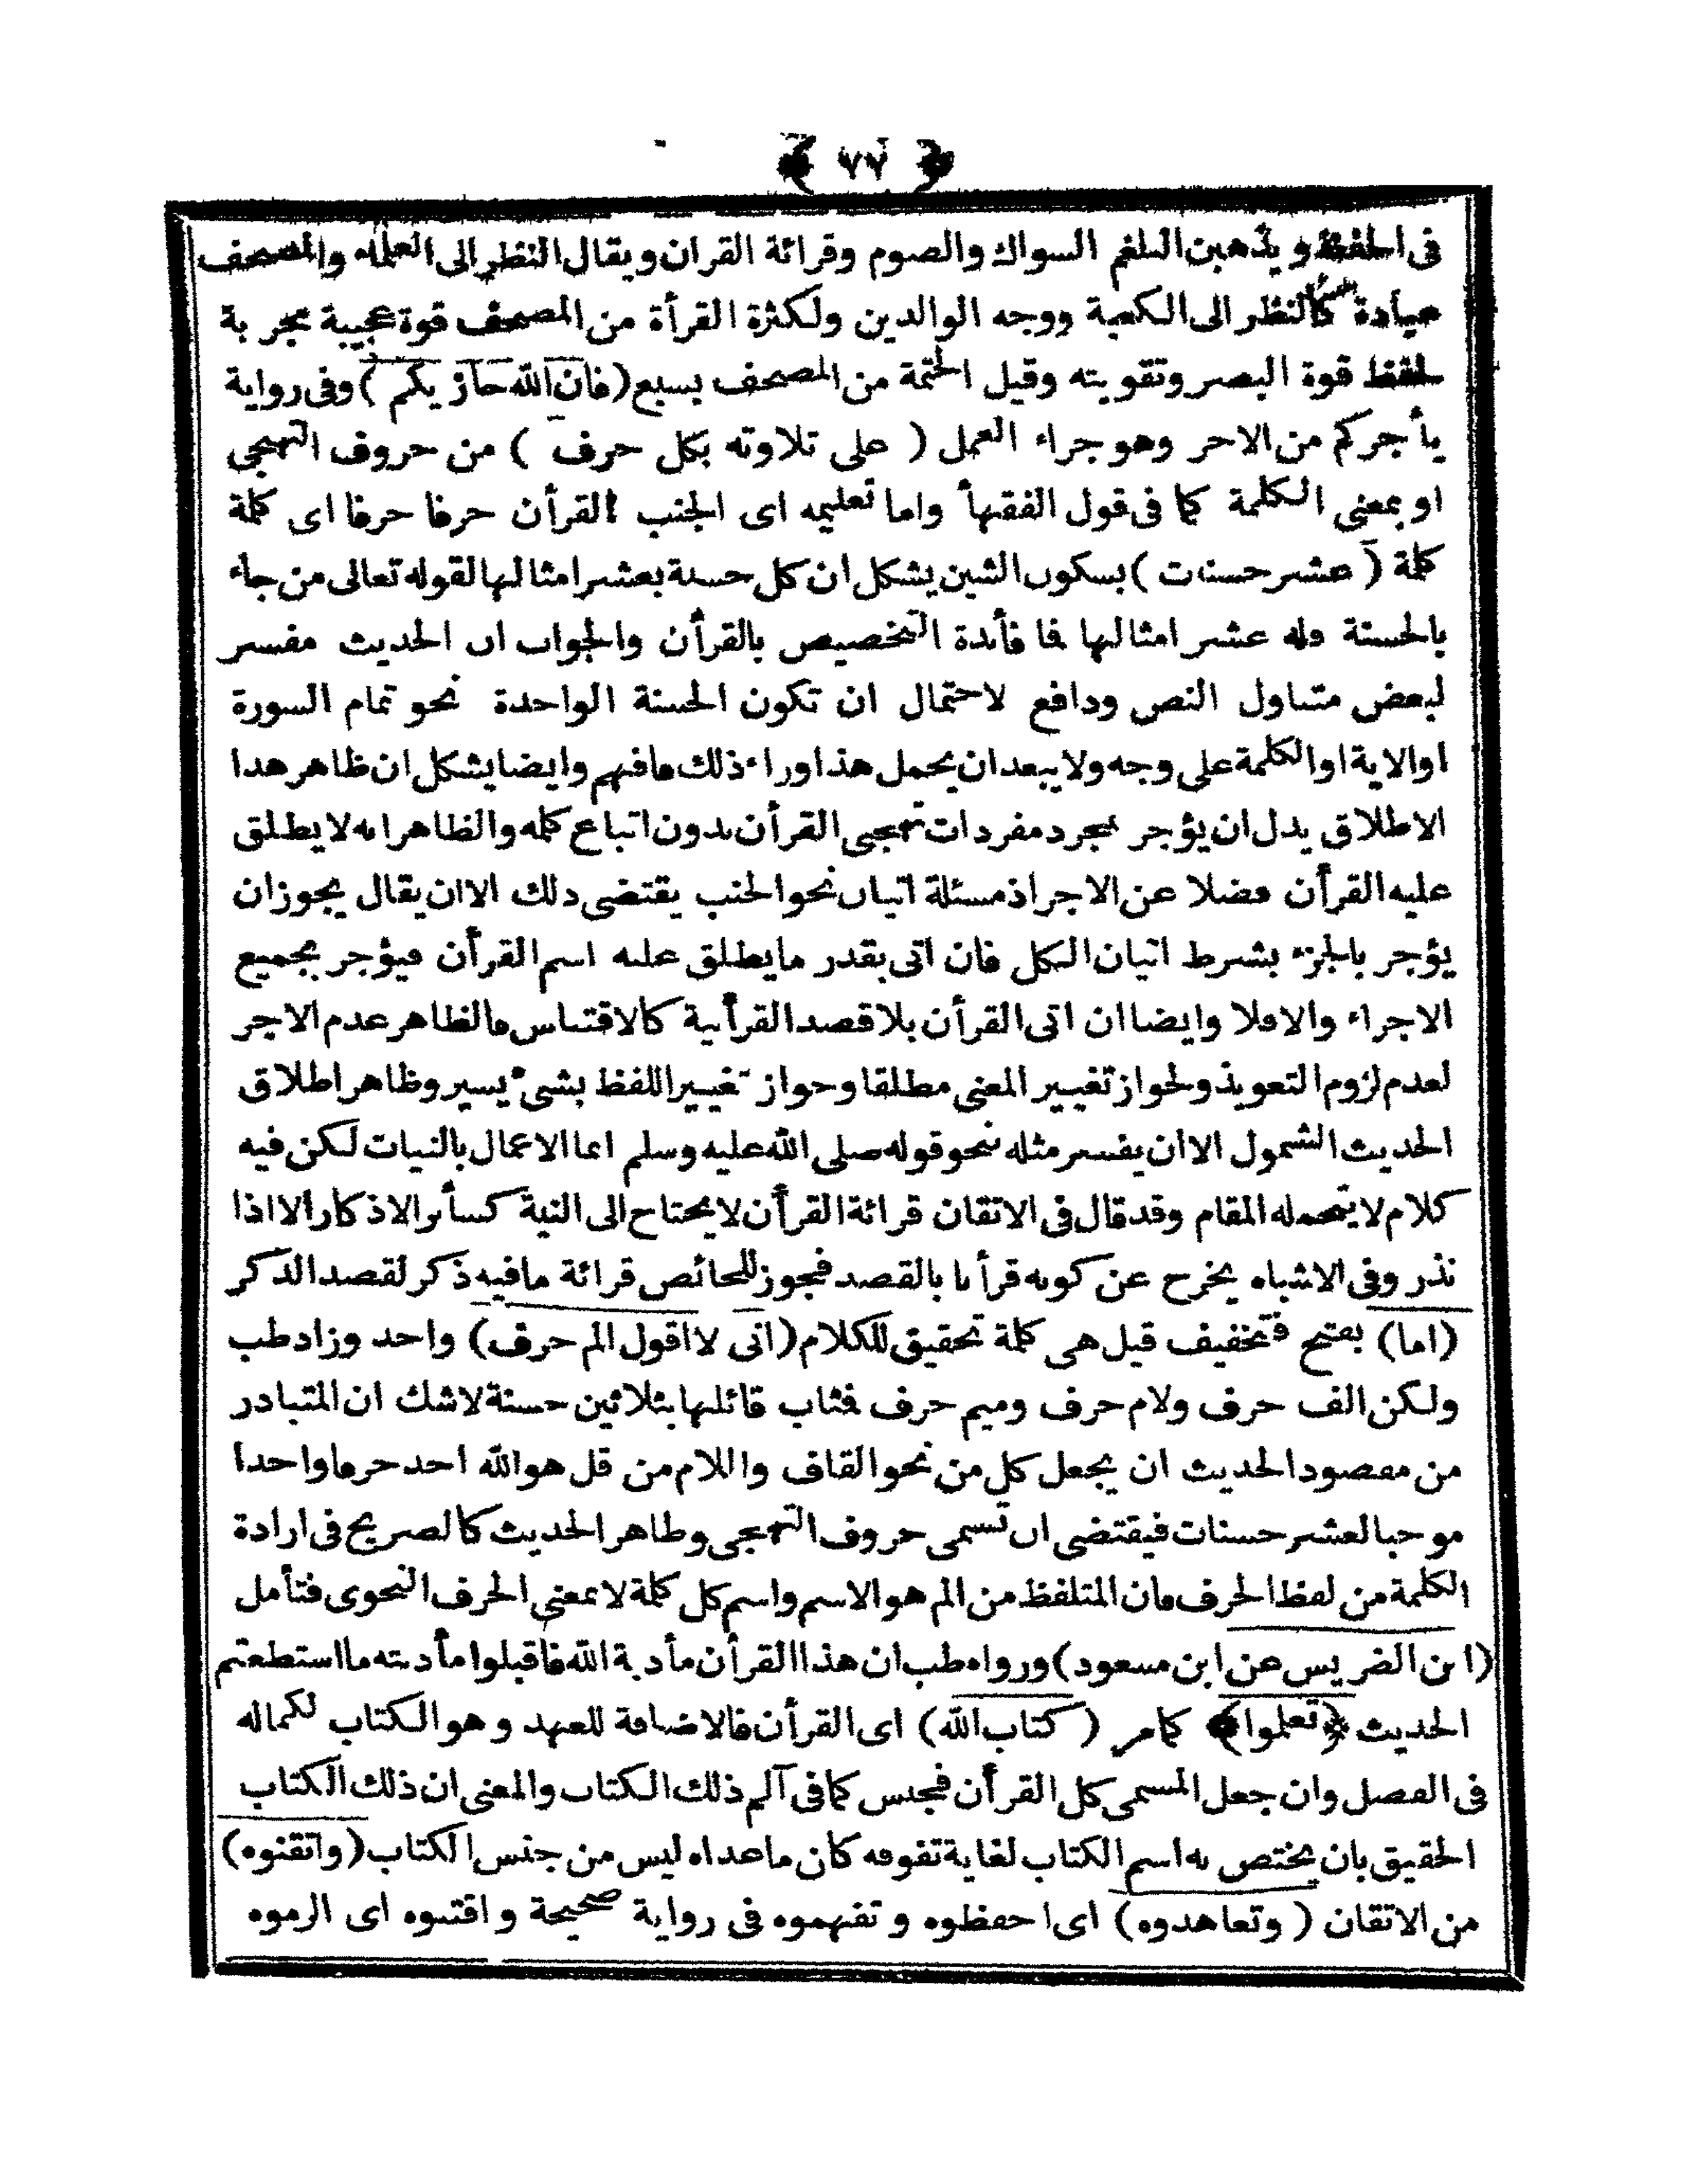 ﴿ ٧٧ ﴾
فى الحفظ ويذهبن البلغم السواك والصوم وقرائة القران ويقال النظر الى العلماء والمصحف
عبادة كالنظر الى الكعبة ووجه الوالدين ولكثرة القرأة من المصحف قوة عجيبة مجربة
لحفظ قوة البصر وتقويته وقيل الختمة من المصحف بسبع (فان الله جازيكم) وفى رواية
يأجركم من الاجر وهو جزاء العمل (على تلاوته بكل حرف) من حروف التهجى
او بمعنى الكلمة كما فى قول الفقهأ واما تعليمه اى الجنب القرأن حرفا حرفا اى كلمة
كلمة (عشر حسنات) بسكون الشين يشكل ان كل حسنة بعشر امثالها لقوله تعالى من جاء
بالحسنة فله عشر امثالها فما فأئدة التخصيص بالقرأن والجواب ان الحديث مفسر
لبعض متناول النص ودافع لاحتمال ان تكون الحسنة الواحدة نحو تمام السورة
او الاية او الكلمة على وجه ولا يبعد ان يحمل هذا وراء ذلك فافهم وايضا يشكل ان ظاهر هدا
الاطلاق يدل ان يؤجر بمجرد مفردات تهجى القرأن بدون اتباع كله والظاهر انه لا يطلق
عليه القرأن فضلا عن الاجر اذ مسئلة اتيان نحو الجنب يقتضى ذلك الا ان يقال يجوز ان
يؤجر بالجزء بشرط اتيان الكل فان اتى بقدر ما يطلق عليه اسم القرأن فيؤجر بجميع
الاجزاء والا فلا وايضا ان اتى القرأن بلا قصد القرأنية كالاقتباس فالظاهر عدم الاجر
لعدم لزوم التعويذ ولجواز تغيير المعنى مطلقا وجواز تغيير اللفظ بشىء يسير وظاهر اطلاق
الحديث الشمول الا ان يفسر مثله نحو قوله صلى الله عليه وسلم انما الاعمال بالنيات لكن فيه
كلام لا يتحمله المقام وقد قال فى الاتقان قرائة القرأن لا يحتاج الى النية كسأئر الاذكار الا اذا
نذر وفى الاشباه يخرج عن كونه قرأنا بالقصد فيجوز للحائض قرائة ما فيه ذكر لقصد الذكر
(اما) بفتح فتخفيف قيل هى كلمة تحقيق للكلام (انى لا اقول الم حرف) واحد وزاد طب
ولكن الف حرف ولام حرف وميم حرف فثاب قائلها بثلاثين حسنة لاشك ان المتبادر
من مقصود الحديث ان يجعل كل من نحو القاف واللام من قل هو الله احد حرفا واحدا
موجبا لعشر حسنات فيقتضى ان تسمى حروف التهجى وظاهر الحديث كالصريح فى ارادة
الكلمة من لفظ الحرف فان المتلفظ من الم هو الاسم واسم كل كلمة لا بمعنى الحرف النحوى فتأمل
(ابن الضريس عن ابن مسعود) ورواه طب ان هذا القرأن مأدبة الله فاقبلوا مأدبته ما استطعتم
الحديث ﴿تعلموا﴾ كما مر (كتاب الله) اى القرأن فالاضافة للعهد وهو الكتاب لكماله
فى الفصل وان جعل المسمى كل القرأن فجنس كما فى آلم ذلك الكتاب والمعنى ان ذلك الكتاب
الحقيق بان يختص به اسم الكتاب لغاية تفوقه كان ما عداه ليس من جنس الكتاب (واتقنوه)
من الاتقان (وتعاهدوه) اى احفظوه وتفهموه فى رواية صحيحة واقتنوه اى الزموه